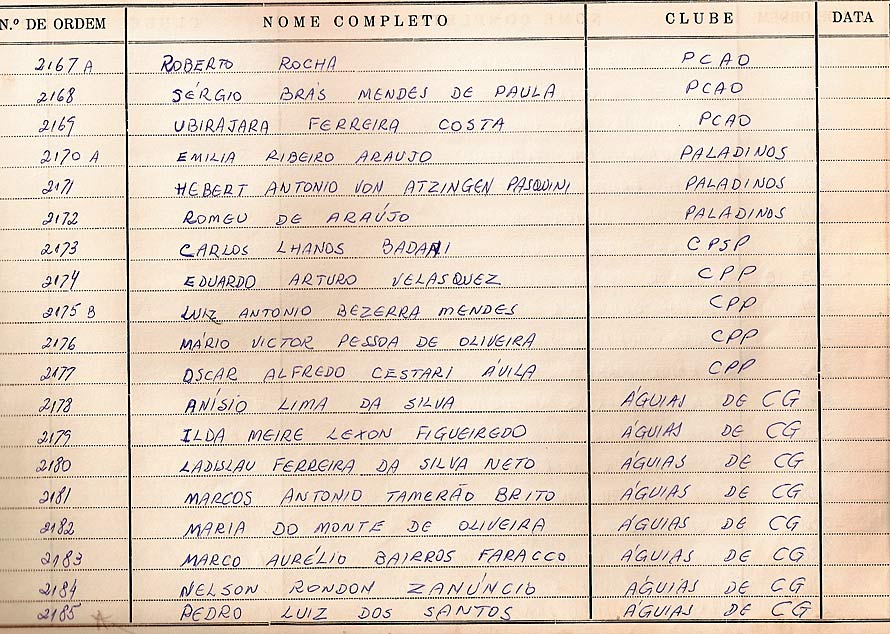 N.º DE ORDEM NOME COMPLETO CLUBE DATA
2167 A ROBERTO ROCHA PCAO
2168 SÉRGIO BRÁS MENDES DE PAULA PCAO
2169 UBIRAJARA FERREIRA COSTA PCAO
2170 A EMILIA RIBEIRO ARAUJO PALADINOS
2171 HEBERT ANTONIO VON ATZINGEN PASQUINI PALADINOS
2172 ROMEU DE ARAÚJO PALADINOS
2173 CARLOS LHANOS CPSP
2174 EDUARDO ARTURO VELASQUEZ CPP
2175 B LUIZ ANTONIO BEZERRA MENDES CPP
2176 MÁRIO VICTOR PESSOA DE OLIVEIRA CPP
2177 OSCAR ALFREDO CESTARI ÁVILA CPP
2178 ANÍSIO LIMA DA SILVA ÁGUIAS DE CG
2179 ILDA MEIRE LEXON FIGUEIREDO ÁGUIAS DE CG
2180 LADISLAU FERREIRA DA SILVA NETO ÁGUIAS DE CG
2181 MARCOS ANTONIO TAMERÃO BRITO ÁGUIAS DE CG
2182 MARIA DO MONTE DE OLIVEIRA ÁGUIAS DE CG
2183 MARCO AURÉLIO BAIRROS FARACCO ÁGUIAS DE CG
2184 NELSON RONDON ZANÚNCIO ÁGUIAS DE CG
2185 PEDRO LUIZ DOS SANTOS ÁGUIAS DE CG